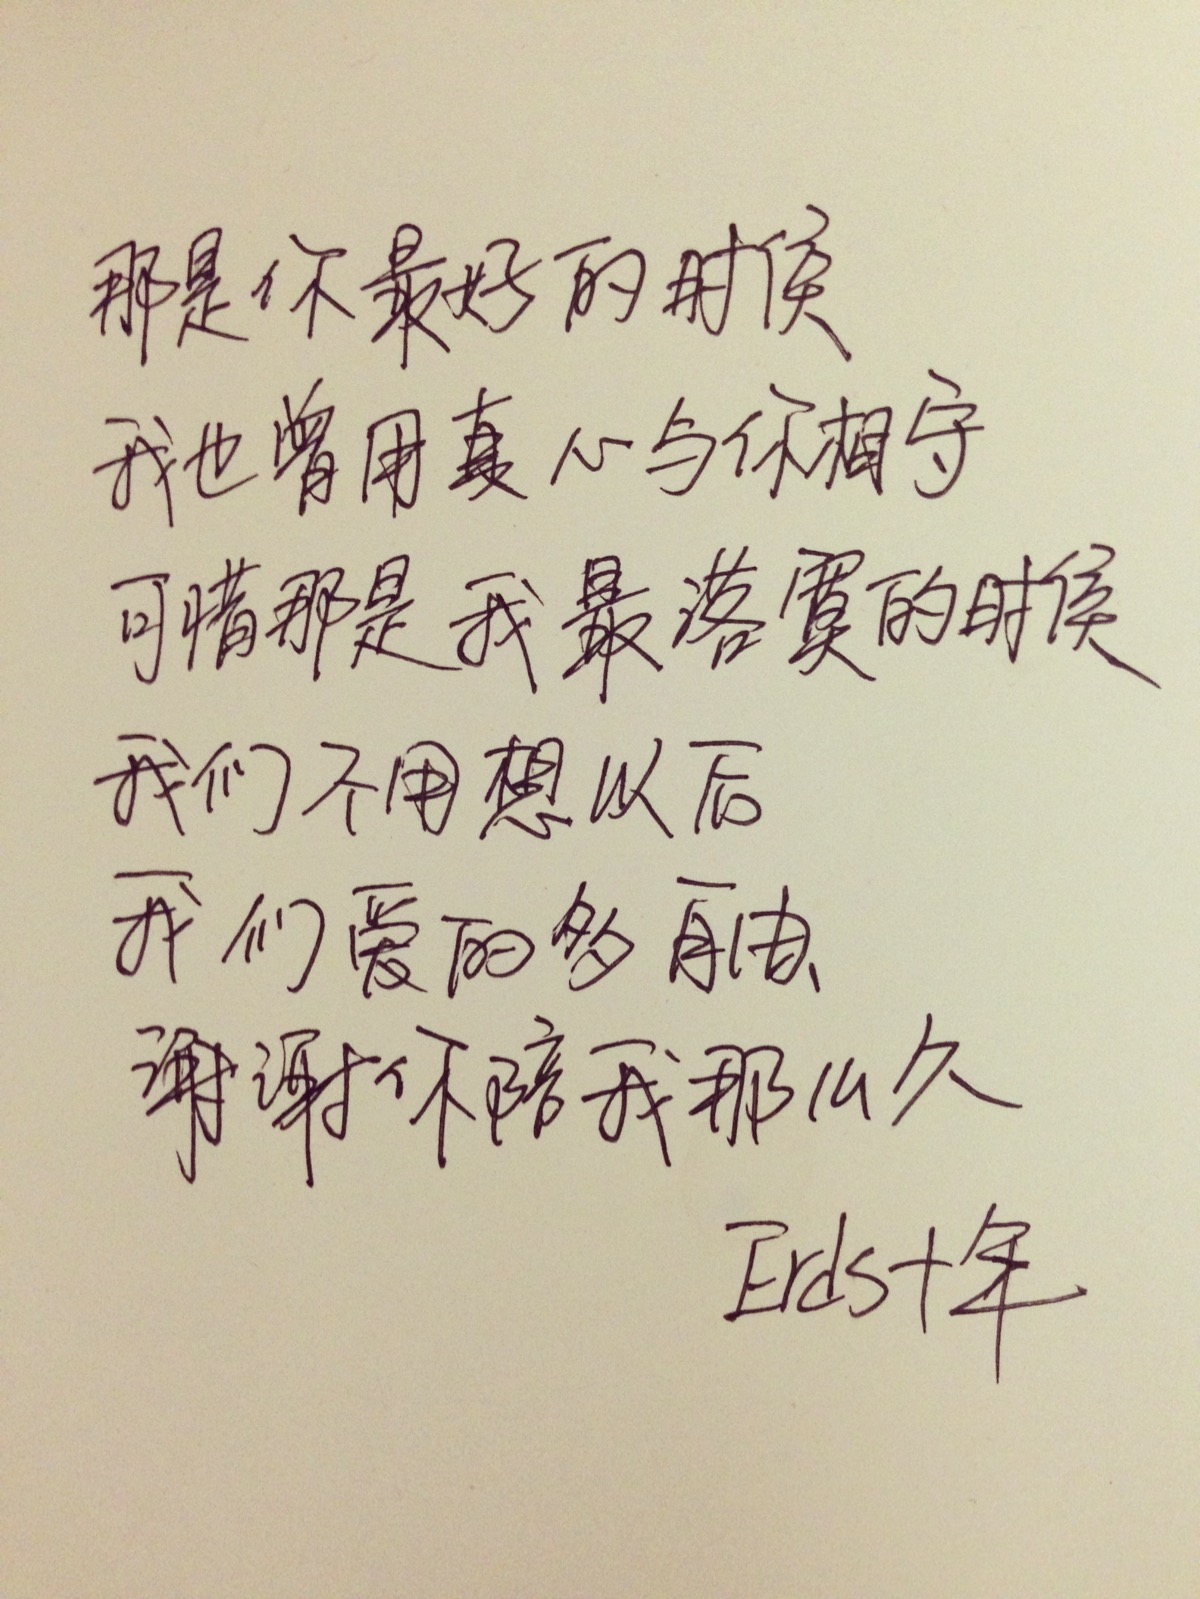 那是你最好的时候
我也曾用真心与你相守
可惜那是我最落寞的时候
我们不用想以后
我们爱的多自由、
谢谢你陪我那么久
Erds十年